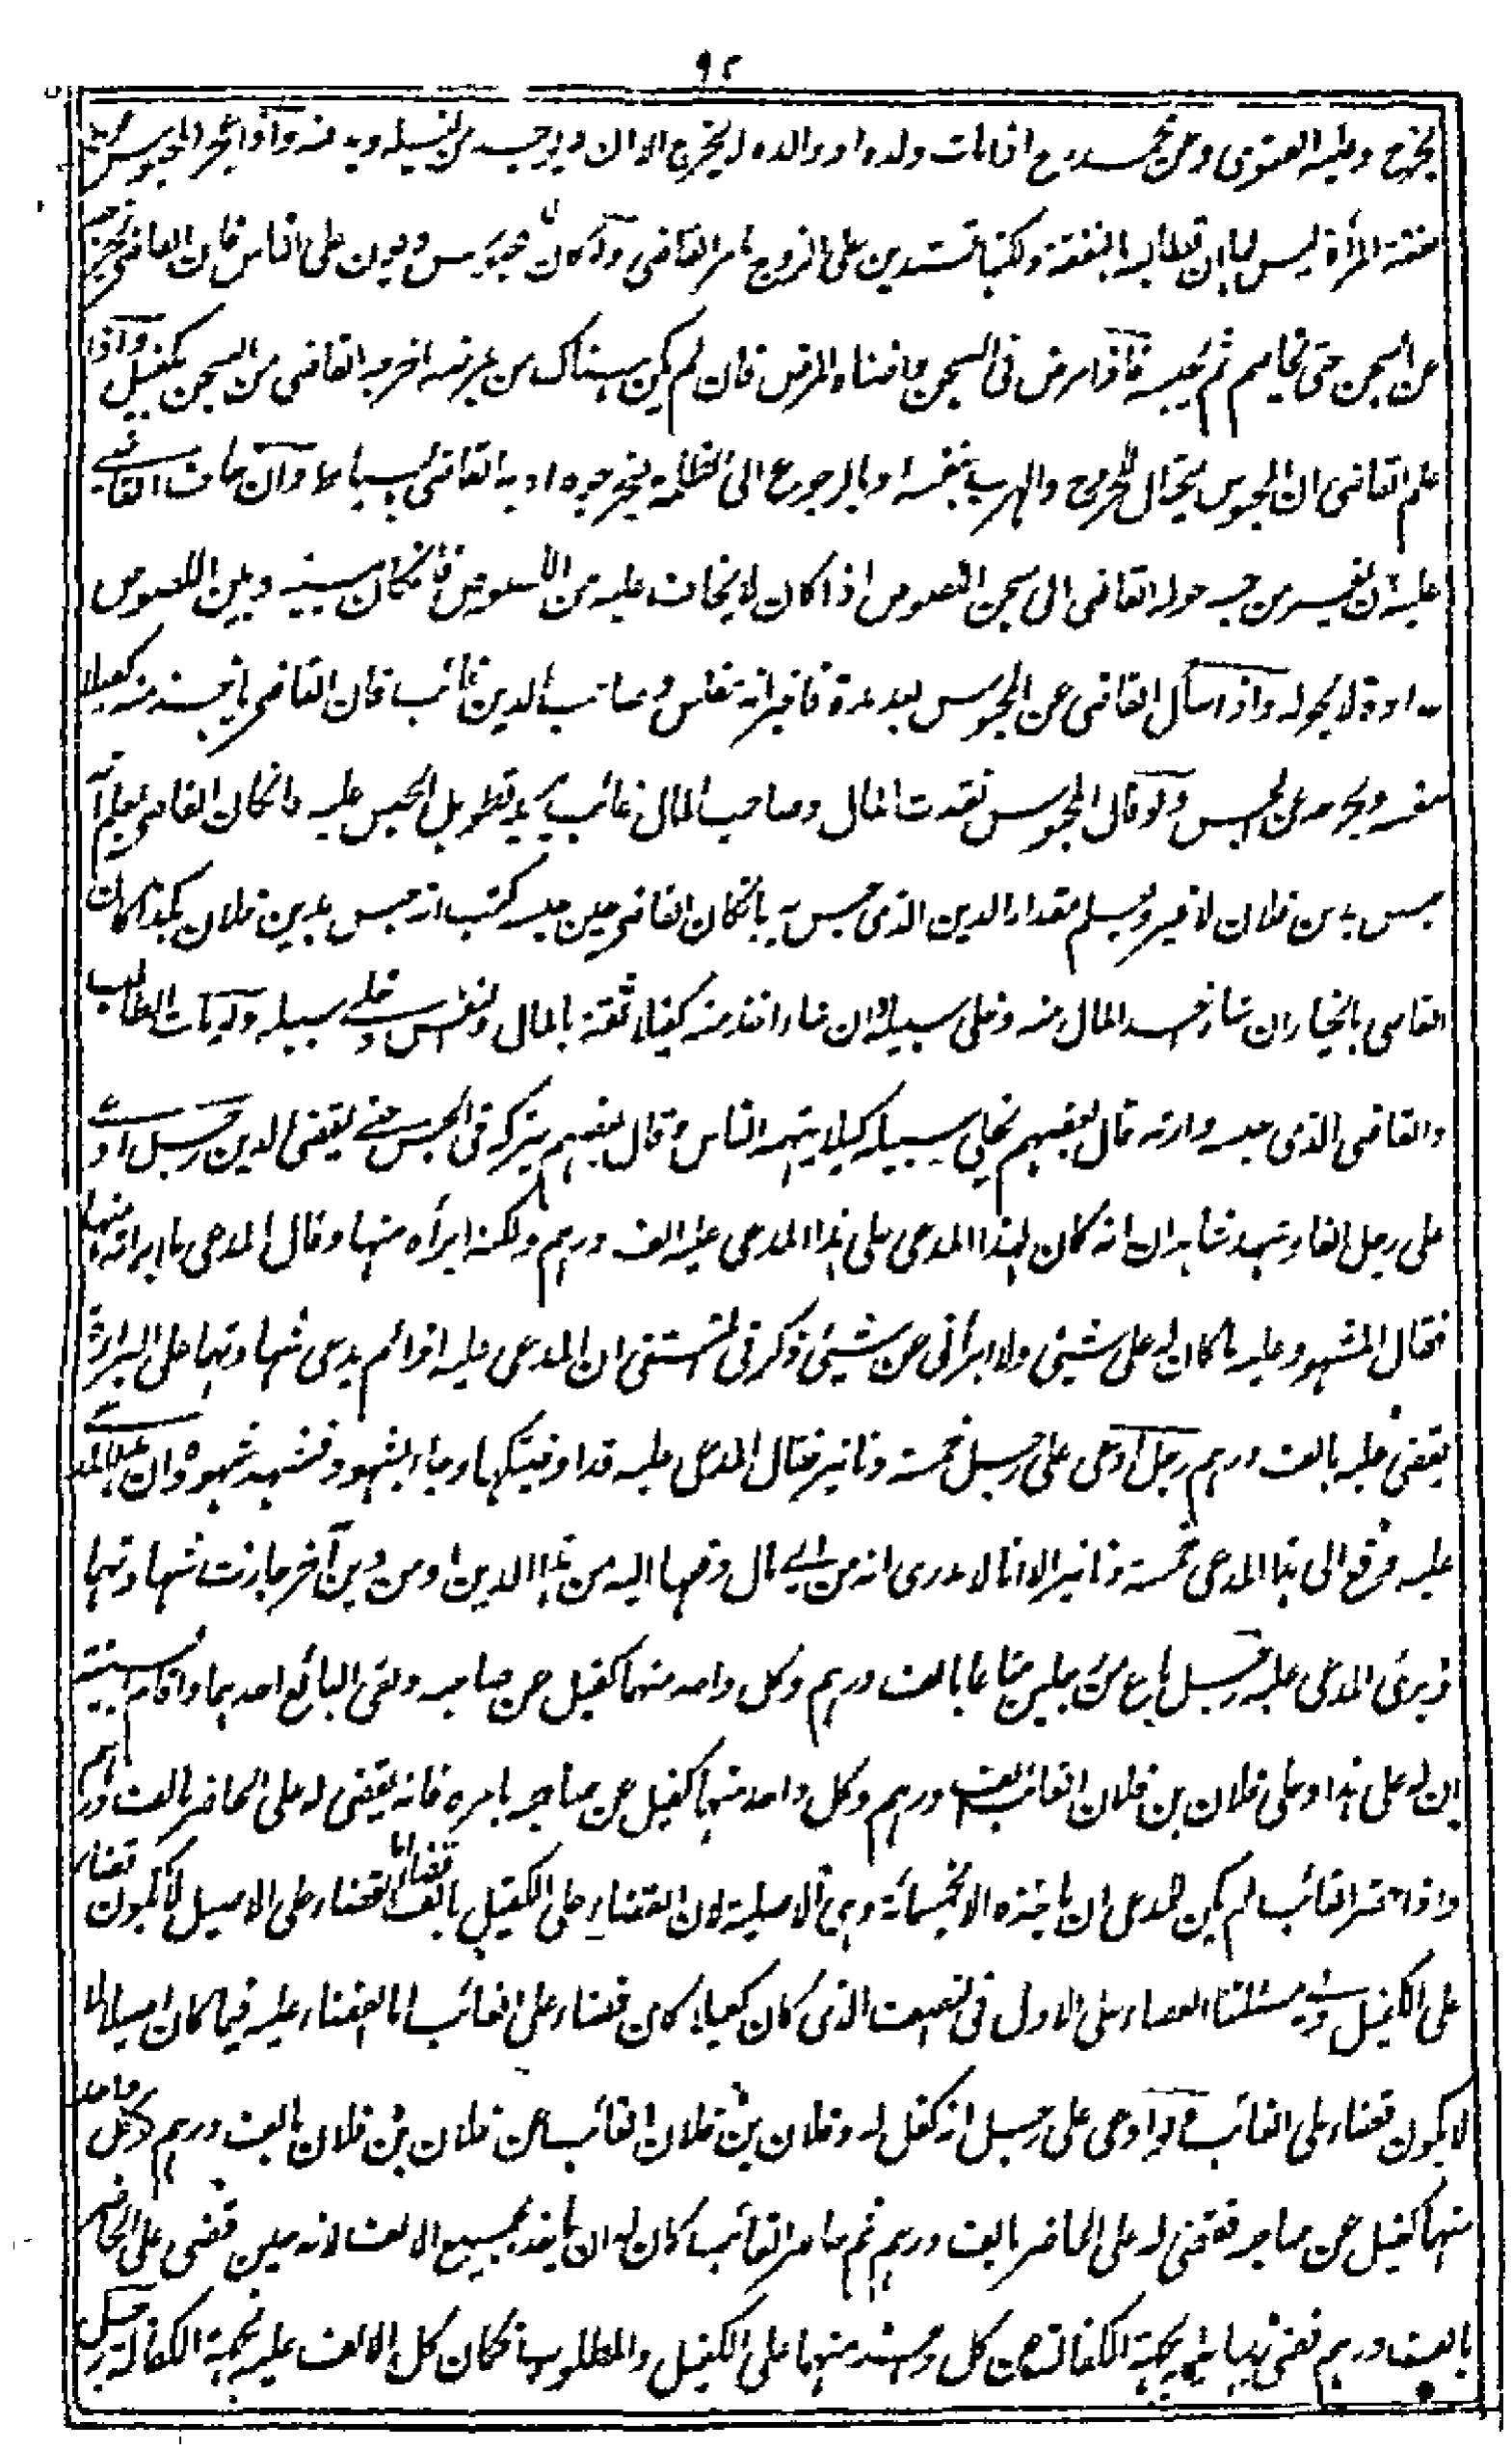 ٩٢
يخرج وعليه الفتوى وعن محمد رح اذا مات ولده او والده لا يخرج الا ان لا يوجد من يغسله ويدفنه واذا عجز المحبوس عن
نفقة المرأة ليس لها ان تطالبه بالنفقة ولكنها تستدين على الزوج بامر القاضي ولو كان للمحبوس ديون على الناس فان القاضي يخرجه
عن السجن حتى يخاصم ثم يحبسه فاذا مرض في السجن واضناه المرض فان لم يكن هناك من يمرضه اخرجه القاضي من السجن بكفيل واذا
علم القاضي ان المحبوس يحتال للخروج والهرب بنفسه او بالرجوع الى الظلمة ادبه القاضي باسياط وان خاف القاضي
عليه ان يفر من حبسه حوله القاضي الى سجن اللصوص اذا كان لا يخاف عليه من اللصوص فان كان بينه وبين اللصوص
عداوة لا يحوله واذا سأل القاضي عن المحبوس بعد مدة فاخبر انه مفلس وصاحب الدين غائب فان القاضي ياخذ منه كفيلا
بنفسه ويخرجه عن الحبس ولو قال المحبوس نقدت المال وصاحب المال غائب يريد تطويل الحبس عليه فان كان القاضي يعلم انه
حبس بدين فلان لا غير ويعلم مقدار الدين الذي حبس به بان كان القاضي حين حبسه كتب انه حبس بدين فلان بكذا كان
القاضي بالخيار ان شاء اخذ المال منه وخلى سبيله وان شاء اخذ منه كفيلا ثقة بالمال والنفس وخلى سبيله ولو مات الطالب
والقاضي الذي حبسه وارثه قال بعضهم يخلي سبيله كيلا يتهمه الناس وقال بعضهم يتركه في الحبس حتى يقضي الدين رجل ادعى
على رجل الفا وشهد شاهدان انه كان لهذا المدعي على هذا المدعى عليه الف درهم ولكنه ابرأه منها وقال المدعي ما ابرأته منها
فقال المشهود عليه ما كان له علي شيئ ولا ابرأني عن شيئ ذكر في المنتقى ان المدعى عليه اذا لم يدعى شهادتهما على البراءة
يقضي عليه بالف درهم رجل ادعى على رجل خمسة دنانير فقال المدعى عليه قد اوفيتكها وجاء بشهود فشهد شهوده ان هذا المدعى
عليه دفع الى هذا المدعي خمسة دنانير الا انا لا ندري انه من اي مال دفعها اليه من هذا الدين او من دين آخر جازت شهادتهما
وبرئ المدعى عليه رجل باع من رجلين متاعا بالف درهم وكل واحد منهما كفيل عن صاحبه ولقي البائع احدهما واقام بينة
ان له على هذا وعلى فلان بن فلان الغائب الف درهم وكل واحد منهما كفيل عن صاحبه بامره فانه يقضي له على الحاضر بالف درهم
واذا حضر الغائب لم يكن للمدعي ان ياخذه الا بخمسمائة وهي الاصلية لان القضاء على الكفيل بالف القضاء على الاصيل لا يكون قضاء
على الكفيل وفي مسئلتنا القضاء على الاول في النصف الذي كان كفيلا كان قضاء على الغائب اما القضاء عليه فيما كان اصيلا
لا يكون قضاء على الغائب ولو ادعى على رجل انه كفل له وفلان بن فلان الغائب عن فلان بن فلان بالف درهم وكل واحد
منهما كفيل عن صاحبه فقضي له على الحاضر بالف درهم ثم حضر الغائب كان له ان ياخذ بجميع الالف لانه حين قضى على الحاضر
بالف درهم بجهة الكفالة عن كل واحد منهما على الكفيل والمطلوب فكان كل الالف عليه بجهة الكفالة رجل